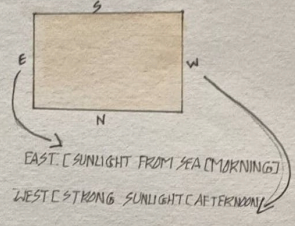 S
E
W
N
EAST [ SUNLIGHT FROM SEA [MORNING]
WEST [ STRONG SUNLIGHT [ AFTERNOON]